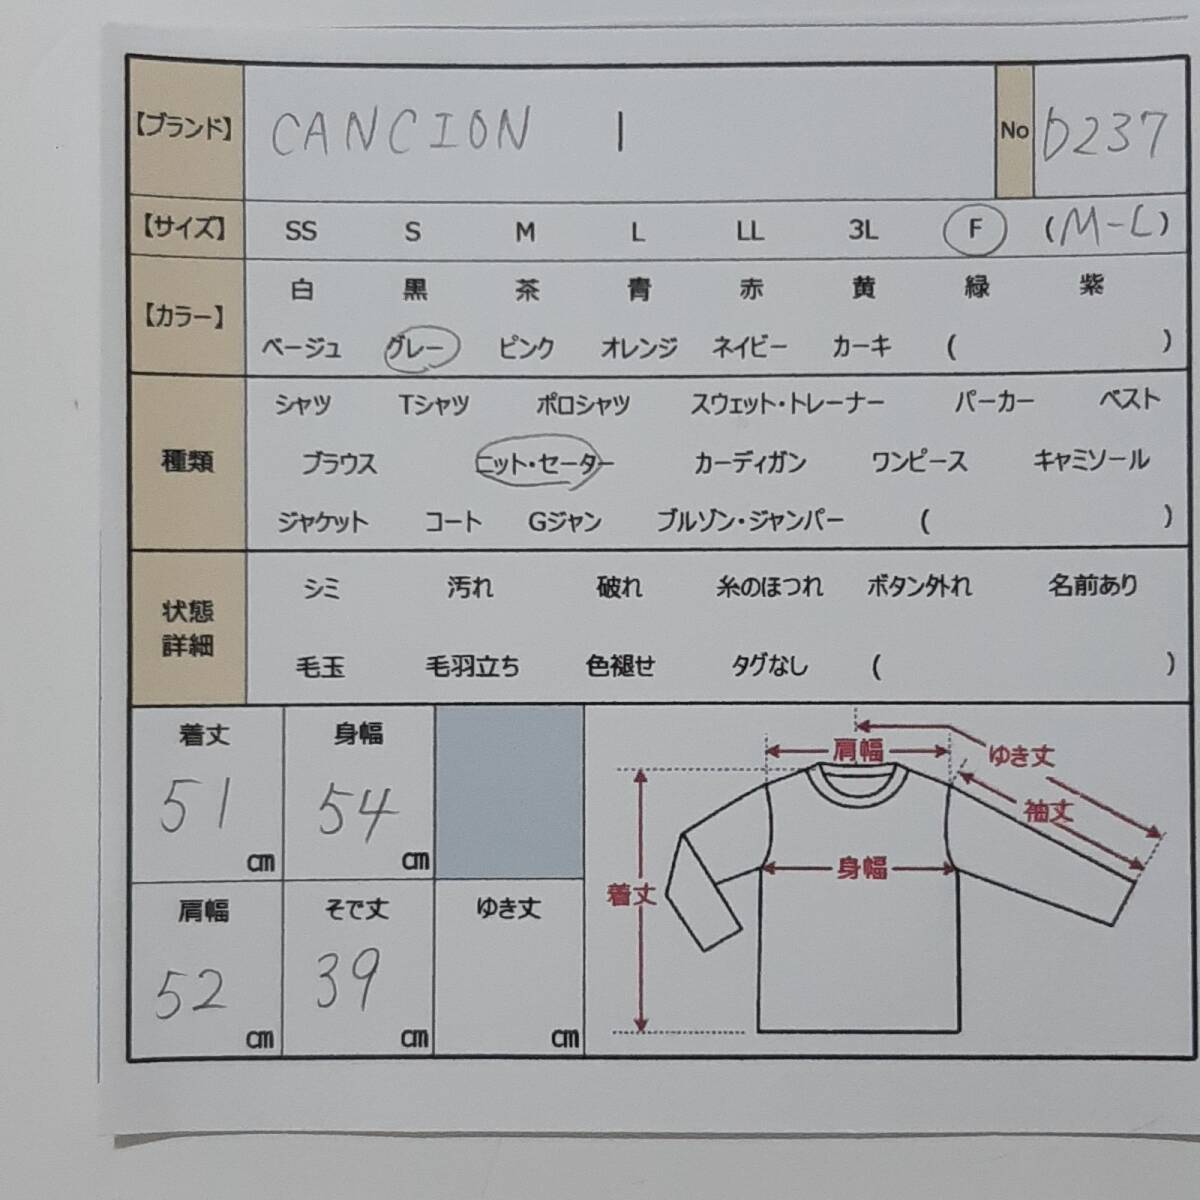 【ブランド】 CANCION | No D237
【サイズ】 SS S M L LL 3L F (M-L)
【カラー】 白 黒 茶 青 赤 黄 緑 紫
ベージュ グレー ピンク オレンジ ネイビー カーキ ( )
種類 シャツ Tシャツ ポロシャツ スウェット・トレーナー パーカー ベスト
ブラウス ニット・セーター カーディガン ワンピース キャミソール
ジャケット コート Gジャン ブルゾン・ジャンパー ( )
状態
詳細
シミ 汚れ 破れ 糸のほつれ ボタン外れ 名前あり
毛玉 毛羽立ち 色褪せ タグなし ( )
着丈 51 cm
身幅 54 cm
肩幅 52 cm
そで丈 39 cm
ゆき丈 cm
肩幅
ゆき丈
袖丈
身幅
着丈